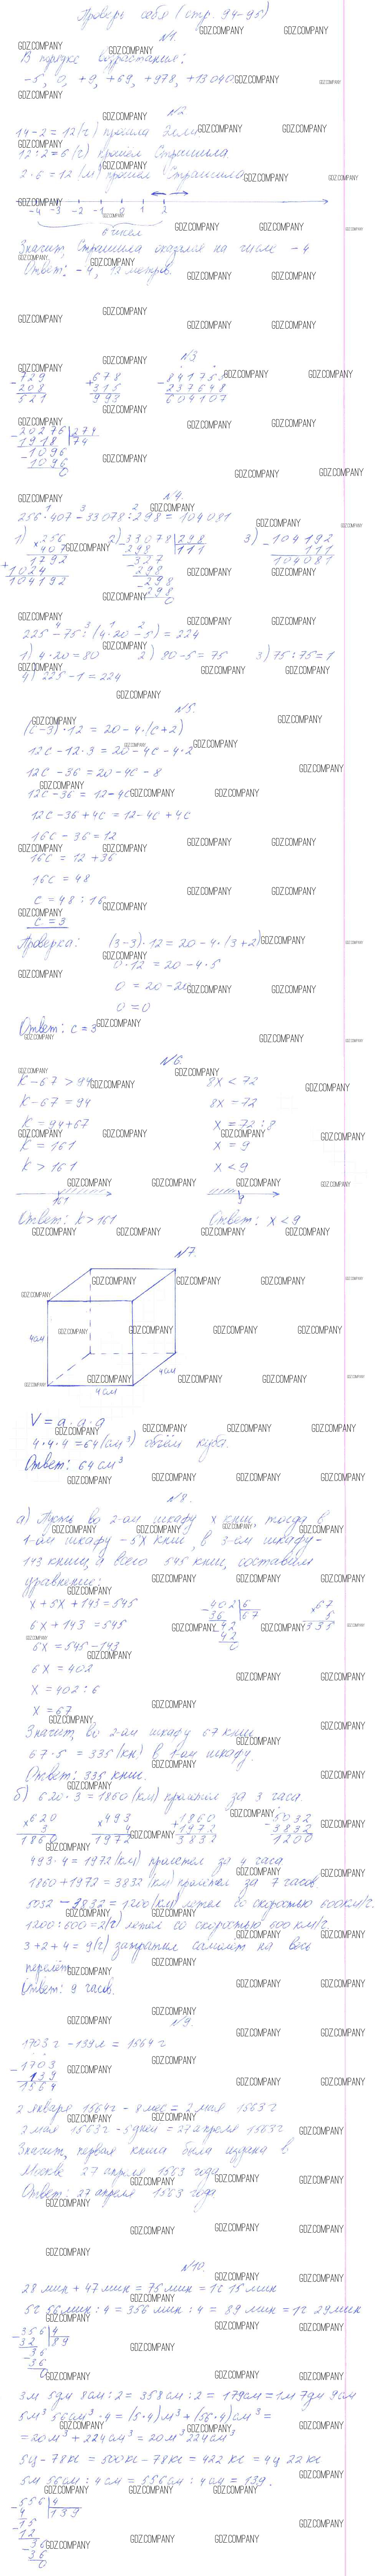 Проверь себя (стр. 94-95)
№1.
В порядке возрастания:
-5, 0, +9, +69, +978, +13040
№2
14-2=12(г) прошла Элли
12:2=6(г) прошёл Страшила
2·6=12(м) прошёл Страшила
-4 -3 -2 -1 0 1 2
6 чисел
Значит, Страшила оказался на числе -4
Ответ: -4, 12 метров.
№3
729 - 208 = 521
678 + 315 = 993
841755 - 237648 = 604107
20276 274
1918 74
1096
1096
0
№4.
256·407-33078:298=104081
1) 256
× 407
1792
+ 1024
104192
2) 33078 298
298 111
327
298
298
298
0
3) 104192
- 111
104081
225-75:(4·20-5)=224
1) 4·20=80 2) 80-5=75 3) 75:75=1
4) 225-1=224
№5.
(c-3)·12=20-4·(c+2)
12c-12·3=20-4c-4·2
12c-36=20-4c-8
12c-36=12-4c
12c-36+4c=12-4c+4c
16c-36=12
16c=12+36
16c=48
c=48:16
c=3
Проверка: (3-3)·12=20-4·(3+2)
0·12=20-4·5
0=20-20
0=0
Ответ: c=3
№6.
K-67>94 8x<72
K-67=94 8x=72
K=94+67 x=72:8
K=161 x=9
K>161 x<9
161 9
Ответ: K>161 Ответ: x<9
№7.
4см
4см
4см
V=a·a·a
4·4·4=64(см³) объём куба.
Ответ: 64см³
№8.
а) Пусть во 2-ом шкафу x книг, тогда в
1-ом шкафу -5x книг, в 3-ем шкафу-
143 книги, а всего 545 книг, составим
уравнение:
x+5x+143=545
6x+143=545
6x=545-143
6x=402
x=402:6
x=67
402 6
36 67
42
42
0
67
× 5
335
Значит, во 2-ом шкафу 67 книг
67·5=335(кн) в 1-ом шкафу.
Ответ: 335 книг.
б) 620·3=1860(км) пролетел за 3 часа.
620 × 3 = 1860
493 × 4 = 1972
1860 + 1972 = 3832
5032 - 3832 = 1200
493·4=1972(км) пролетел за 4 часа
1860+1972=3832(км) пролетел за 7 часов
5032-3832=1200(км) летел со скоростью 600км/ч.
1200:600=2(ч) летел со скоростью 600 км/ч
3+2+4=9(ч) затратил самолёт на весь
перелёт.
Ответ: 9 часов.
№9.
1703г-139л=1564г
1703
- 139
1564
2 января 1564г-8мес=2 мая 1563г
2 мая 1563г-5дней=27 апреля 1563г
Значит, первая книга была издана в
Москве 27 апреля 1563 года
Ответ: 27 апреля 1563 года
№10.
28 мин+47мин=75мин=1ч 15мин
5ч 56мин:4=356мин:4=89мин=1ч 29мин
356 4
32 89
36
36
0
3м 5дм 8см:2=358см:2=179см=1м 7дм 9см
5м³ 56см³·4=(5·4)м³+(56·4)см³=
=20м³+224см³=20м³ 224см³
5ц-78кг=500кг-78кг=422кг=4ц 22кг
5м 56см:4см=556см:4см=139.
556 4
4 139
15
12
36
36
0
GDZ.COMPANY